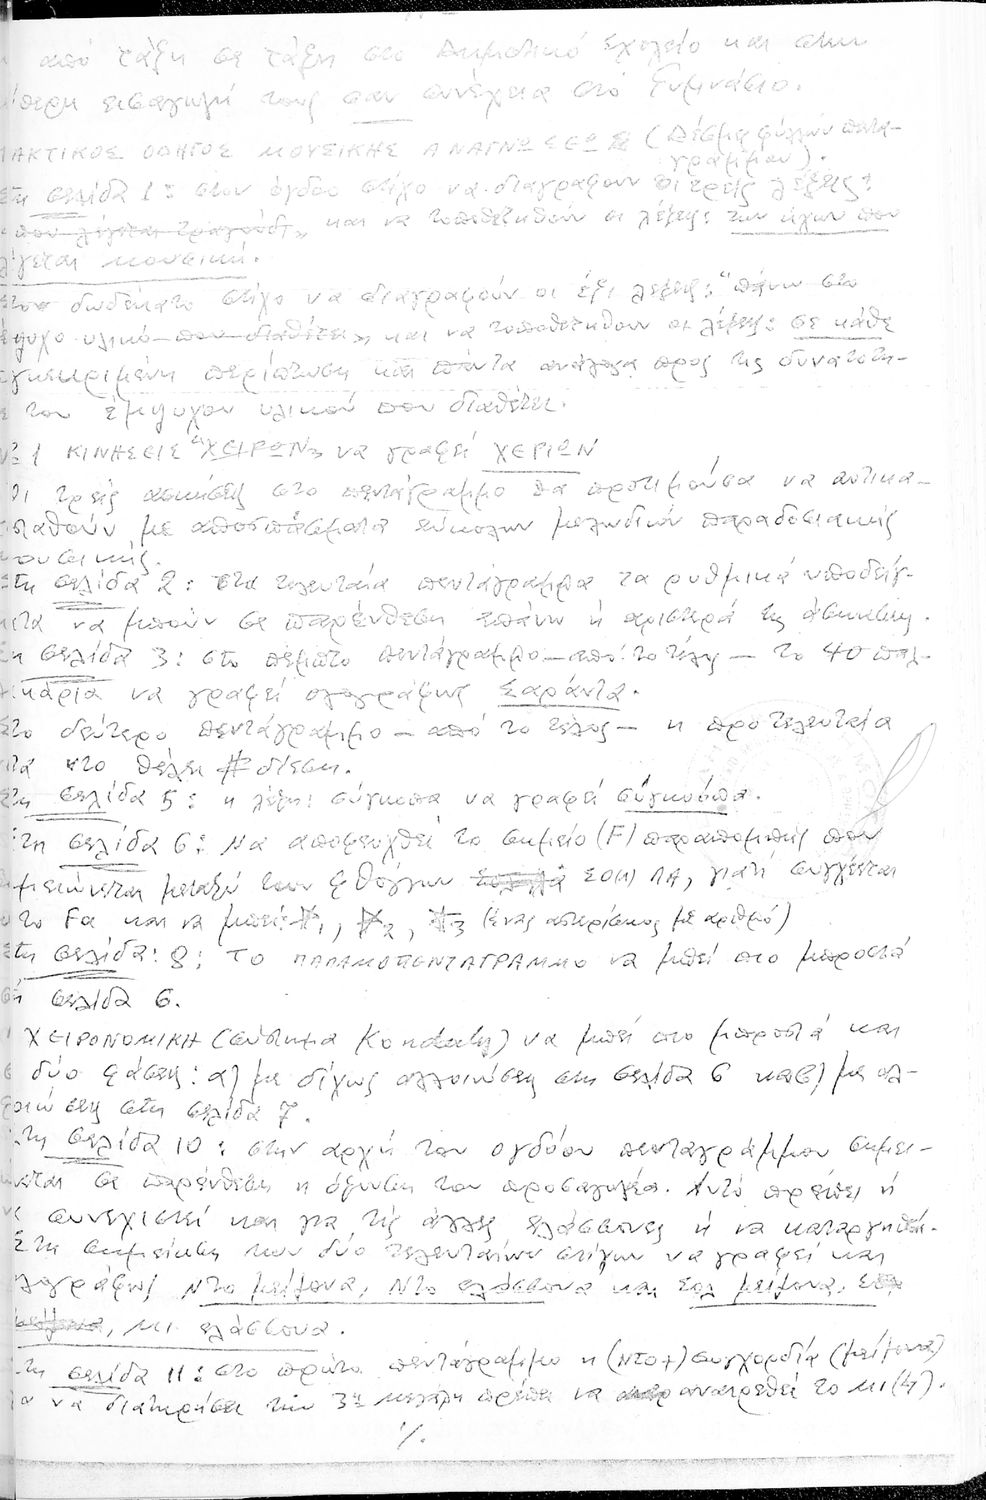 από τάξη σε τάξη στο Δημοτικό Σχολείο και στην
εισαγωγή τους σαν συνέχεια στο Γυμνάσιο.
ΑΚΤΙΚΟΣ ΟΔΗΓΟΣ ΜΟΥΣΙΚΗΣ ΑΝΑΓΝΩΣΕΩΣ (Δέσμη φύλλων πεντα-
γράμμου).
στη σελίδα 1: στον όγδοο στίχο να διαγραφούν οι τρείς λέξεις:
που λέγεται τραγούδι» και να τοποθετηθούν οι λέξεις: των ήχων που
λέγεται μουσική.
Στον δωδέκατο στίχο να διαγραφούν οι έξι λέξεις: "πάνω στο
έμψυχο υλικό που διαθέτει» και να τοποθετηθούν οι λέξεις: σε κάθε
συγκεκριμένη περίπτωση και πάντα ανάλογα προς τις δυνατότη-
του έμψυχου υλικού που διαθέτει.
1 ΚΙΝΗΣΕΙΣ "ΧΕΙΡΩΝ» να γραφεί ΧΕΡΙΩΝ
Οι τρείς ασκήσεις στο πεντάγραμμο θα προτιμούσα να αντικα-
σταθούν με αποσπάσματα εύκολων μελωδιών παραδοσιακής
μουσικής.
Στη σελίδα 2: στα τελευταία πεντάγραμμα τα ρυθμικά υποδείγ-
ματα να μπούν σε παρένθεση επάνω ή αριστερά της άσκησης.
Στη σελίδα 3: στο πέμπτο πεντάγραμμο—από το τέλος— το 40 παλ-
ληκάρια να γραφεί ολογράφως σαράντα.
Στο δεύτερο πεντάγραμμο—από το τέλος— η προτελευταία
νότα ντο θέλει # δίεση.
Στη σελίδα 5: η λέξη: σύγκοπα να γραφεί σύγκοπα.
Στη σελίδα 6: Να αποφευχθεί το σημείο (F) παραπομπής που
σημειώνεται μεταξύ των φθόγγων ΣΟ(Λ) ΛΑ, γιατί συγχέεται
με το Fα και να μπεί: *1, *2, *3 (ένας αστερίσκος με αριθμό)
Στη σελίδα: 8: ΤΟ ΠΑΛΑΜΟΠΕΝΤΑΓΡΑΜΜΟ να μπεί πιο μπροστά
στη σελίδα 6.
Η ΧΕΙΡΟΝΟΜΙΚΗ (σύστημα Kodaly) να μπεί πιο μπροστά και
σε δύο φάσεις: α) με δίχως αλλοιώσεις στη σελίδα 6 και β) με αλ-
λοιώσεις στη σελίδα 7.
Στη σελίδα 10: στην αρχή του ογδόου πενταγράμμου σημει-
ώνεται σε παρένθεση η όξυνση του προσαγωγέα. Αυτό πρέπει ή
να συνεχιστεί και για τις άλλες ελάσσονες ή να καταργηθεί.
Στη σημείωση των δύο τελευταίων στίχων να γραφεί και
ολογράφως Ντο μείζονα, Ντο ελάσσονα και Σολ μείζονα,
, μι ελάσσονα.
Στη σελίδα 11: στο πρώτο πεντάγραμμο η (ΝΤΟ+) συγχορδία (μείζονα)
για να διατηρήσει την 3η μεγάλη πρέπει να αναιρεθεί το μι(4).
./.